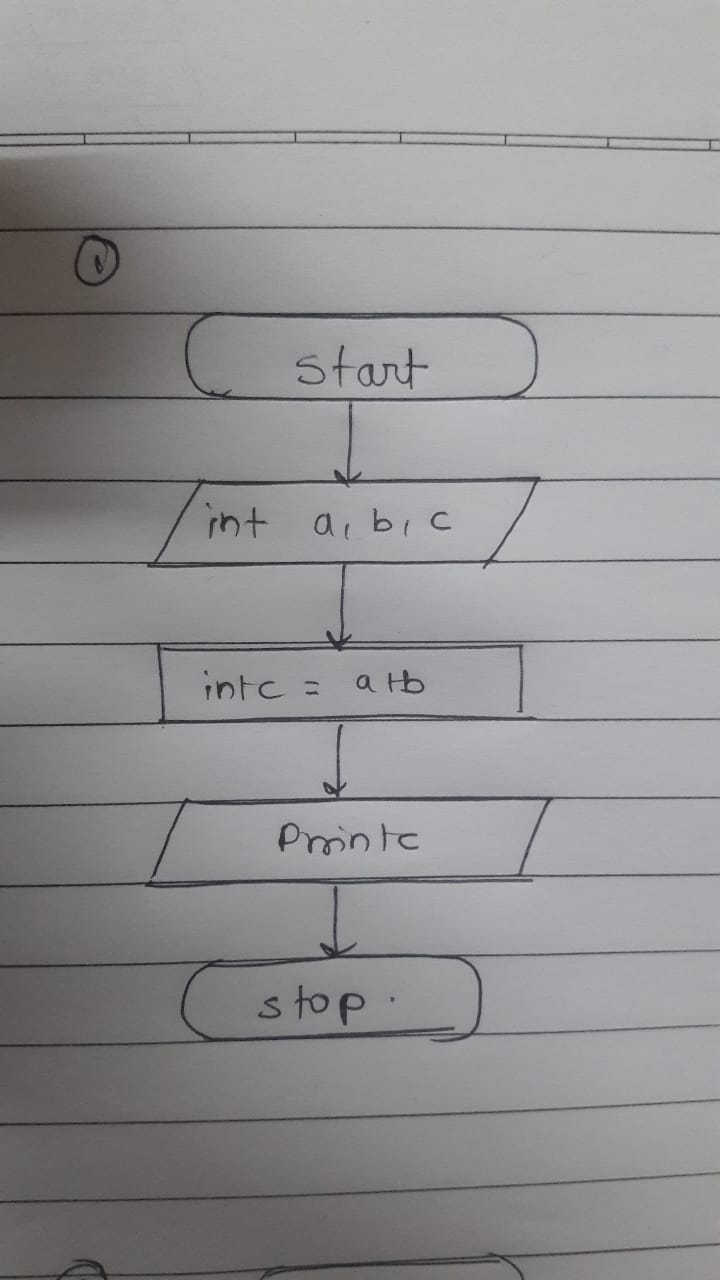 1
start
int a, b, c
int c = a+b
Print c
stop.